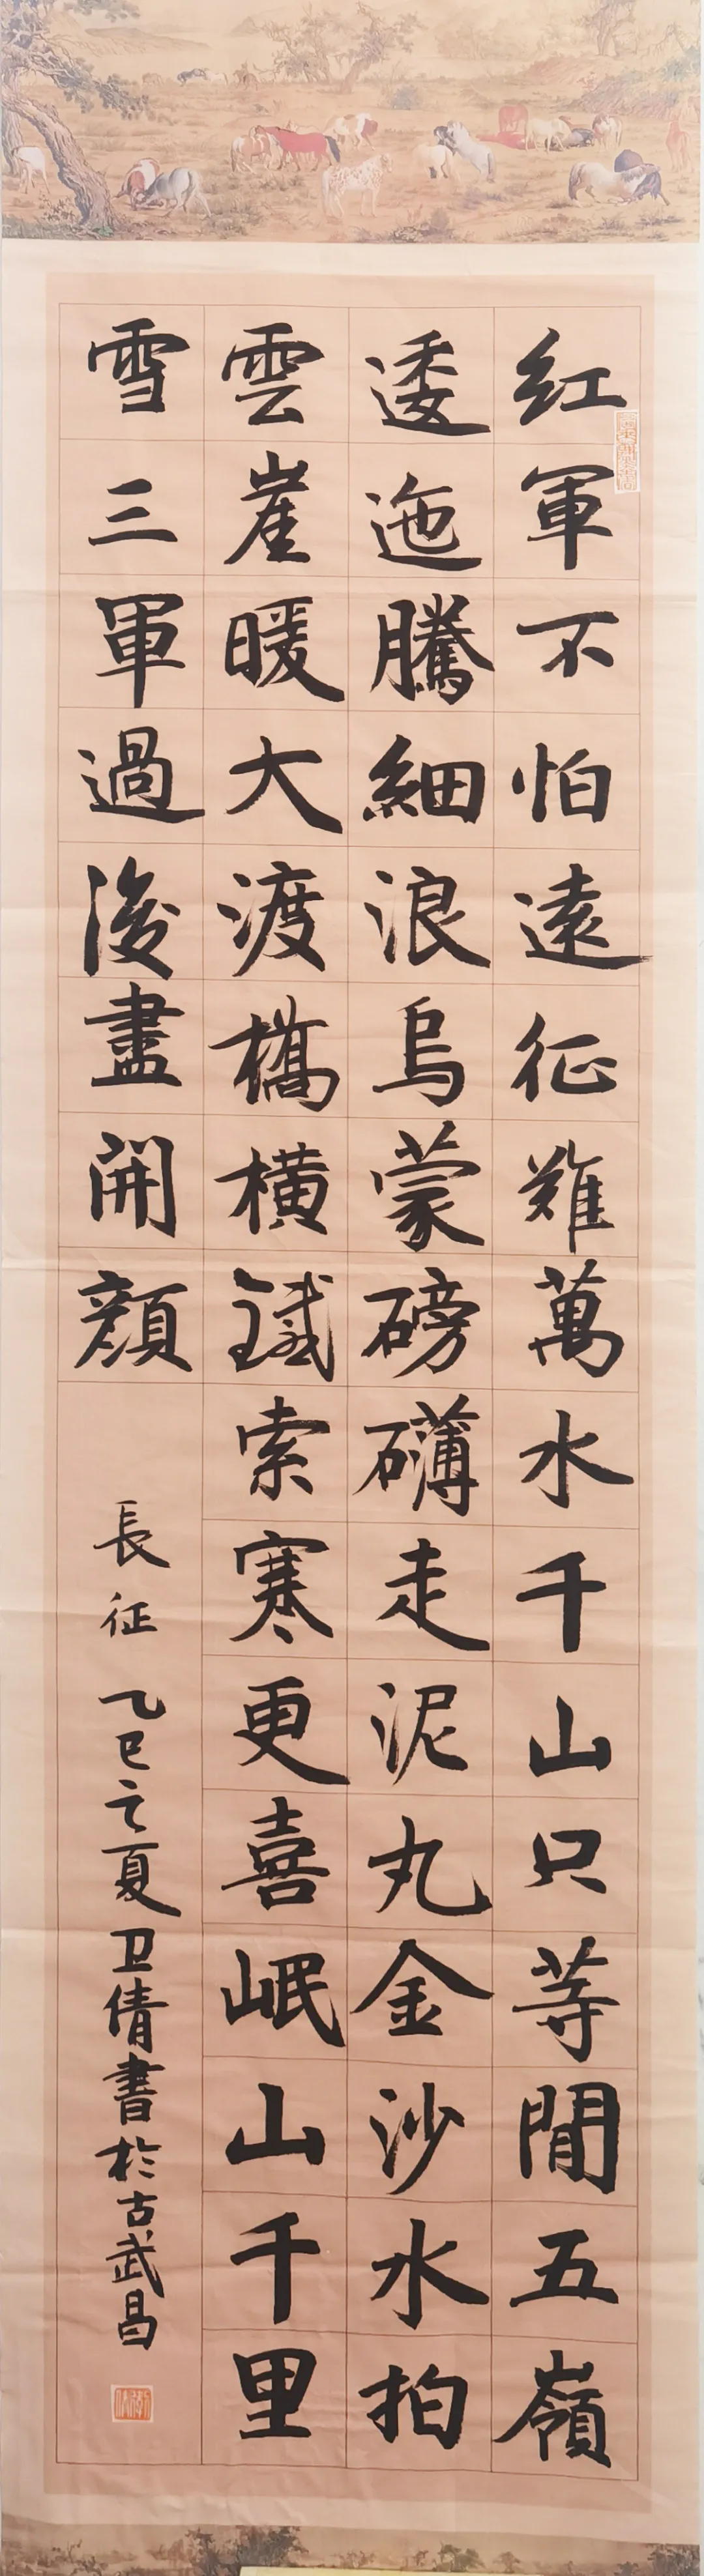 红軍不怕遠征難萬水千山只等閒五嶺
逶迤騰細浪烏蒙磅礴走泥丸金沙水拍
雲崖暖大渡橋横鐵索寒更喜岷山千里
雪三軍過後盡開顔
長征 乙巳之夏卫倩書於古武昌